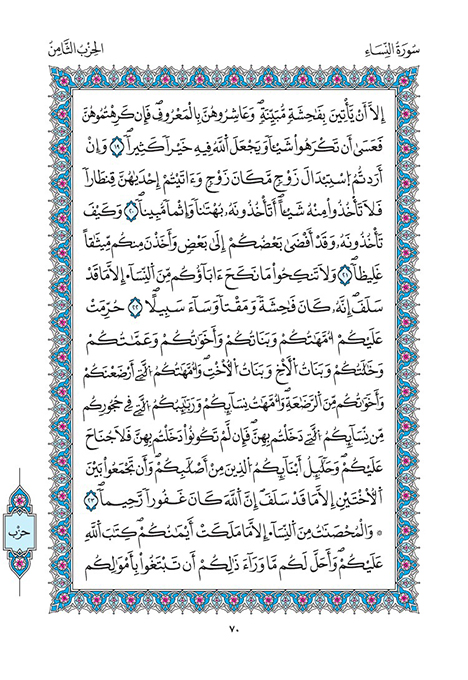 سُورَةُ النِّسَاءِ
الحِزْبُ الثَّامِنُ
إِلَّآ أَنْ يَّاتِينَ بِفَٰحِشَةٖ مُّبَيِّنَةٖۖ وَعَاشِرُوهُنَّ بِالْمَعْرُوفِۖ فَإِن كَرِهْتُمُوهُنَّ
فَعَسَىٰٓ أَن تَكْرَهُواْ شَيْـٔاٗ وَيَجْعَلَ اَ۬للَّهُ فِيهِ خَيْراٗ كَثِيراٗۖ ١٩ وَإِنْ
أَرَدتُّمُ اُ۪سْتِبْدَالَ زَوْجٖ مَّكَانَ زَوْجٖ وَءَاتَيْتُمُۥٓ إِحْدَىٰهُنَّ قِنطَاراٗ
فَلَا تَاخُذُواْ مِنْهُ شَيْـٔاًۖ اَتَاخُذُونَهُۥ بُهْتَٰناٗ وَإِثْماٗ مُّبِيناٗۖ ٢٠ وَكَيْفَ
تَاخُذُونَهُۥ وَقَدْ أَفْضَىٰ بَعْضُكُمُۥٓ إِلَىٰ بَعْضٖ وَأَخَذْنَ مِنكُم مِّيثَٰقاً
غَلِيظاٗۖ ٢١ وَلَا تَنكِحُواْ مَا نَكَحَ ءَابَآؤُكُم مِّنَ اَ۬لنِّسَآءِ اِ۪لَّا مَا قَدْ
سَلَفَۖ إِنَّهُۥ كَانَ فَٰحِشَةٗ وَمَقْتاٗ وَسَآءَ سَبِيلاًۖ ٢٢ حُرِّمَتْ
عَلَيْكُمُۥٓ أُمَّهَٰتُكُمْ وَبَنَاتُكُمْ وَأَخَوَٰتُكُمْ وَعَمَّٰتُكُمْ
وَخَٰلَٰتُكُمْ وَبَنَاتُ اُ۬لْأَخِ وَبَنَاتُ اُ۬لُاخْتِۖ وَأُمَّهَٰتُكُمُ اُ۬لَّٰتِےٓ أَرْضَعْنَكُمْ
وَأَخَوَٰتُكُم مِّنَ اَ۬لرَّضَٰعَةِۖ وَأُمَّهَٰتُ نِسَآئِكُمْ وَرَبَٰٓئِبُكُمُ اُ۬لَّٰتِے فِے حُجُورِكُم
مِّن نِّسَآئِكُمُ اُ۬لَّٰتِے دَخَلْتُم بِهِنَّۖ فَإِن لَّمْ تَكُونُواْ دَخَلْتُم بِهِنَّ فَلَا جُنَاحَ
عَلَيْكُمْۖ وَحَلَٰٓئِلُ أَبْنَآئِكُمُ اُ۬لذِينَ مِنَ اَصْلَٰبِكُمْۖ وَأَن تَجْمَعُواْ بَيْنَ
اَ۬لُاخْتَيْنِ إِلَّا مَا قَدْ سَلَفَۖ إِنَّ اَ۬للَّهَ كَانَ غَفُوراٗ رَّحِيماٗۖ ٢٣
* وَالْمُحْصَنَٰتُ مِنَ اَ۬لنِّسَآءِ اِ۪لَّا مَا مَلَكَتَ اَيْمَٰنُكُمْۖ كِتَٰبَ اَ۬للَّهِ
عَلَيْكُمْۖ وَأَحَلَّ لَكُم مَّا وَرَآءَ ذَٰلِكُمُۥٓ أَن تَبْتَغُواْ بِأَمْوَٰلِكُم
حِزْب
٧٠